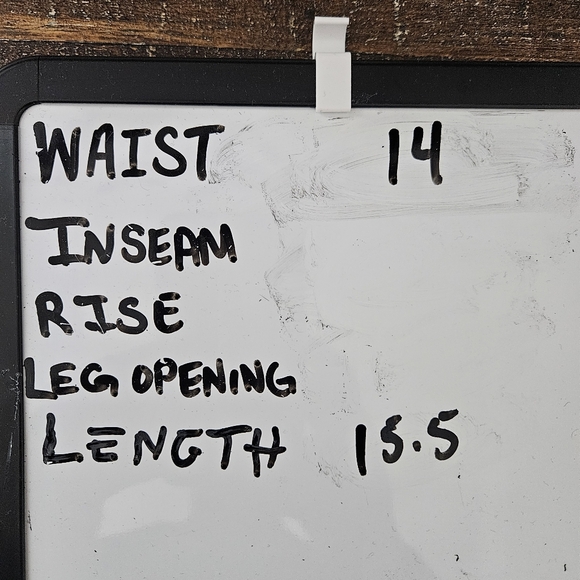 WAIST 14
INSEAM
RISE
LEG OPENING
LENGTH 15.5